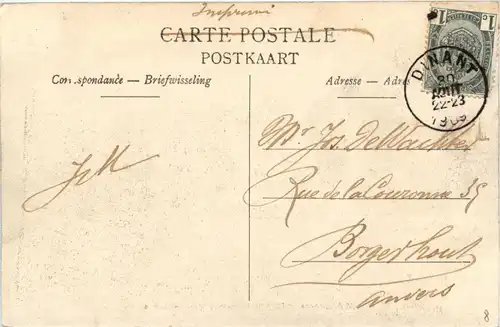 Imprimé
CARTE POSTALE
POSTKAART
Correspondance — Briefwisseling
Adresse — Adres
1c 1c
DINANT
30
AOUT
22-23
1909
JM
Mr Jos. de Wachter
Rue de la Couronne 35
Borgerhout
Anvers
8